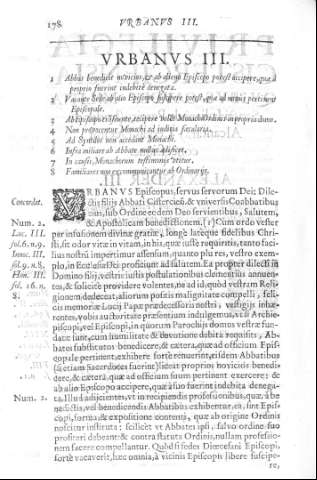 178. VRBANVS III.
VRBANVS III.
1 Abbas benedicit novicios, & ab alieno Episcopo potest accipere, quæ à
proprio fuerint indebitè denegata.
2 Vacante Sede ab alio Episcopo suscipere potest, quæ ad munus pertinent
Episcopale.
3 Ab Episcopo transeunte, recipere Monachi
4 Non proponentur Monachi ad iudicia sæcularia.
5 Ad Synodos non accedant Monachi.
6 Infra militare ab Abbate nullus
7 In causis, Monachorum testimonijs vtetur.
8 Familiares non excommunicentur ab Ordinarijs.
VRBANVS Episcopus, servus servorum Dei; Dile-
Concordat. ctis filijs Abbati Cistercij, & vniversis Coabbatibus
eius, sub Ordine eodem Deo servientibus, Salutem,
Num. 2. & Apostolicam benedictionem. (1) Cum ordo vester
Luc. III. per infusionem divinæ gratiæ, longè lateque fidelibus Chri-
fol. 6. n. 9. sti, sit odor vitæ in vitam, in his, quæ iustè requiritis, tanto faci-
Innoc. III. lius nostrum impertimur assensum, quanto plures, vestro exem-
fol. 9. n. 8. plo, in Ecclesia Dei proficiunt ad salutem. Ea propter dilecti in
Hon. III. Domino filij, vestris iustis postulationibus clementius annuen-
fol. 16. n. tes, & sollicitè providere volentes, ne ad id, quod vestram Reli-
8. gionem dedeceat, aliorum possitis malignitate compelli, feli-
cis memoriæ Lucij Papæ prædecessoris nostri, vestigijs inhæ-
rentes, vobis auctoritate præsentium indulgemus, vt si Archie-
piscopi, vel Episcopi, in quorum Parochijs domos vestræ fun-
datæ sunt, cum humilitate & devotione debita requisiti, Ab-
bates substitutos benedicere, & cætera, quæ ad officium Epis-
copale pertinent, exhibere fortè renuerint, eisdem Abbatibus
(si etiam Sacerdotes fuerint) liceat proprios novicios benedi-
cere, & cætera, quæ ad officium suum pertinent exercere; &
ab alio Episcopo accipere, quæ à suo fuerint indebita denega-
Num. 2. ta. Illud adijcientes, vt in recipiendis professionibus, quæ à be-
nedictis, vel benedicendis Abbatibus exhibentur, ea, sint Epis-
copi, forma, & expositione contenti, quæ ab origine Ordinis
noscitur instituta: scilicet vt Abbates ipsi, salvo ordine suo
profiteri debeant, & contra statuta Ordinis, nullam professio-
nem facere compellantur. Quod si sedes Diœcesani Episcopi,
fortè vacaverit, hæc omnia, à vicinis Episcopis liberè suscipe-
re,